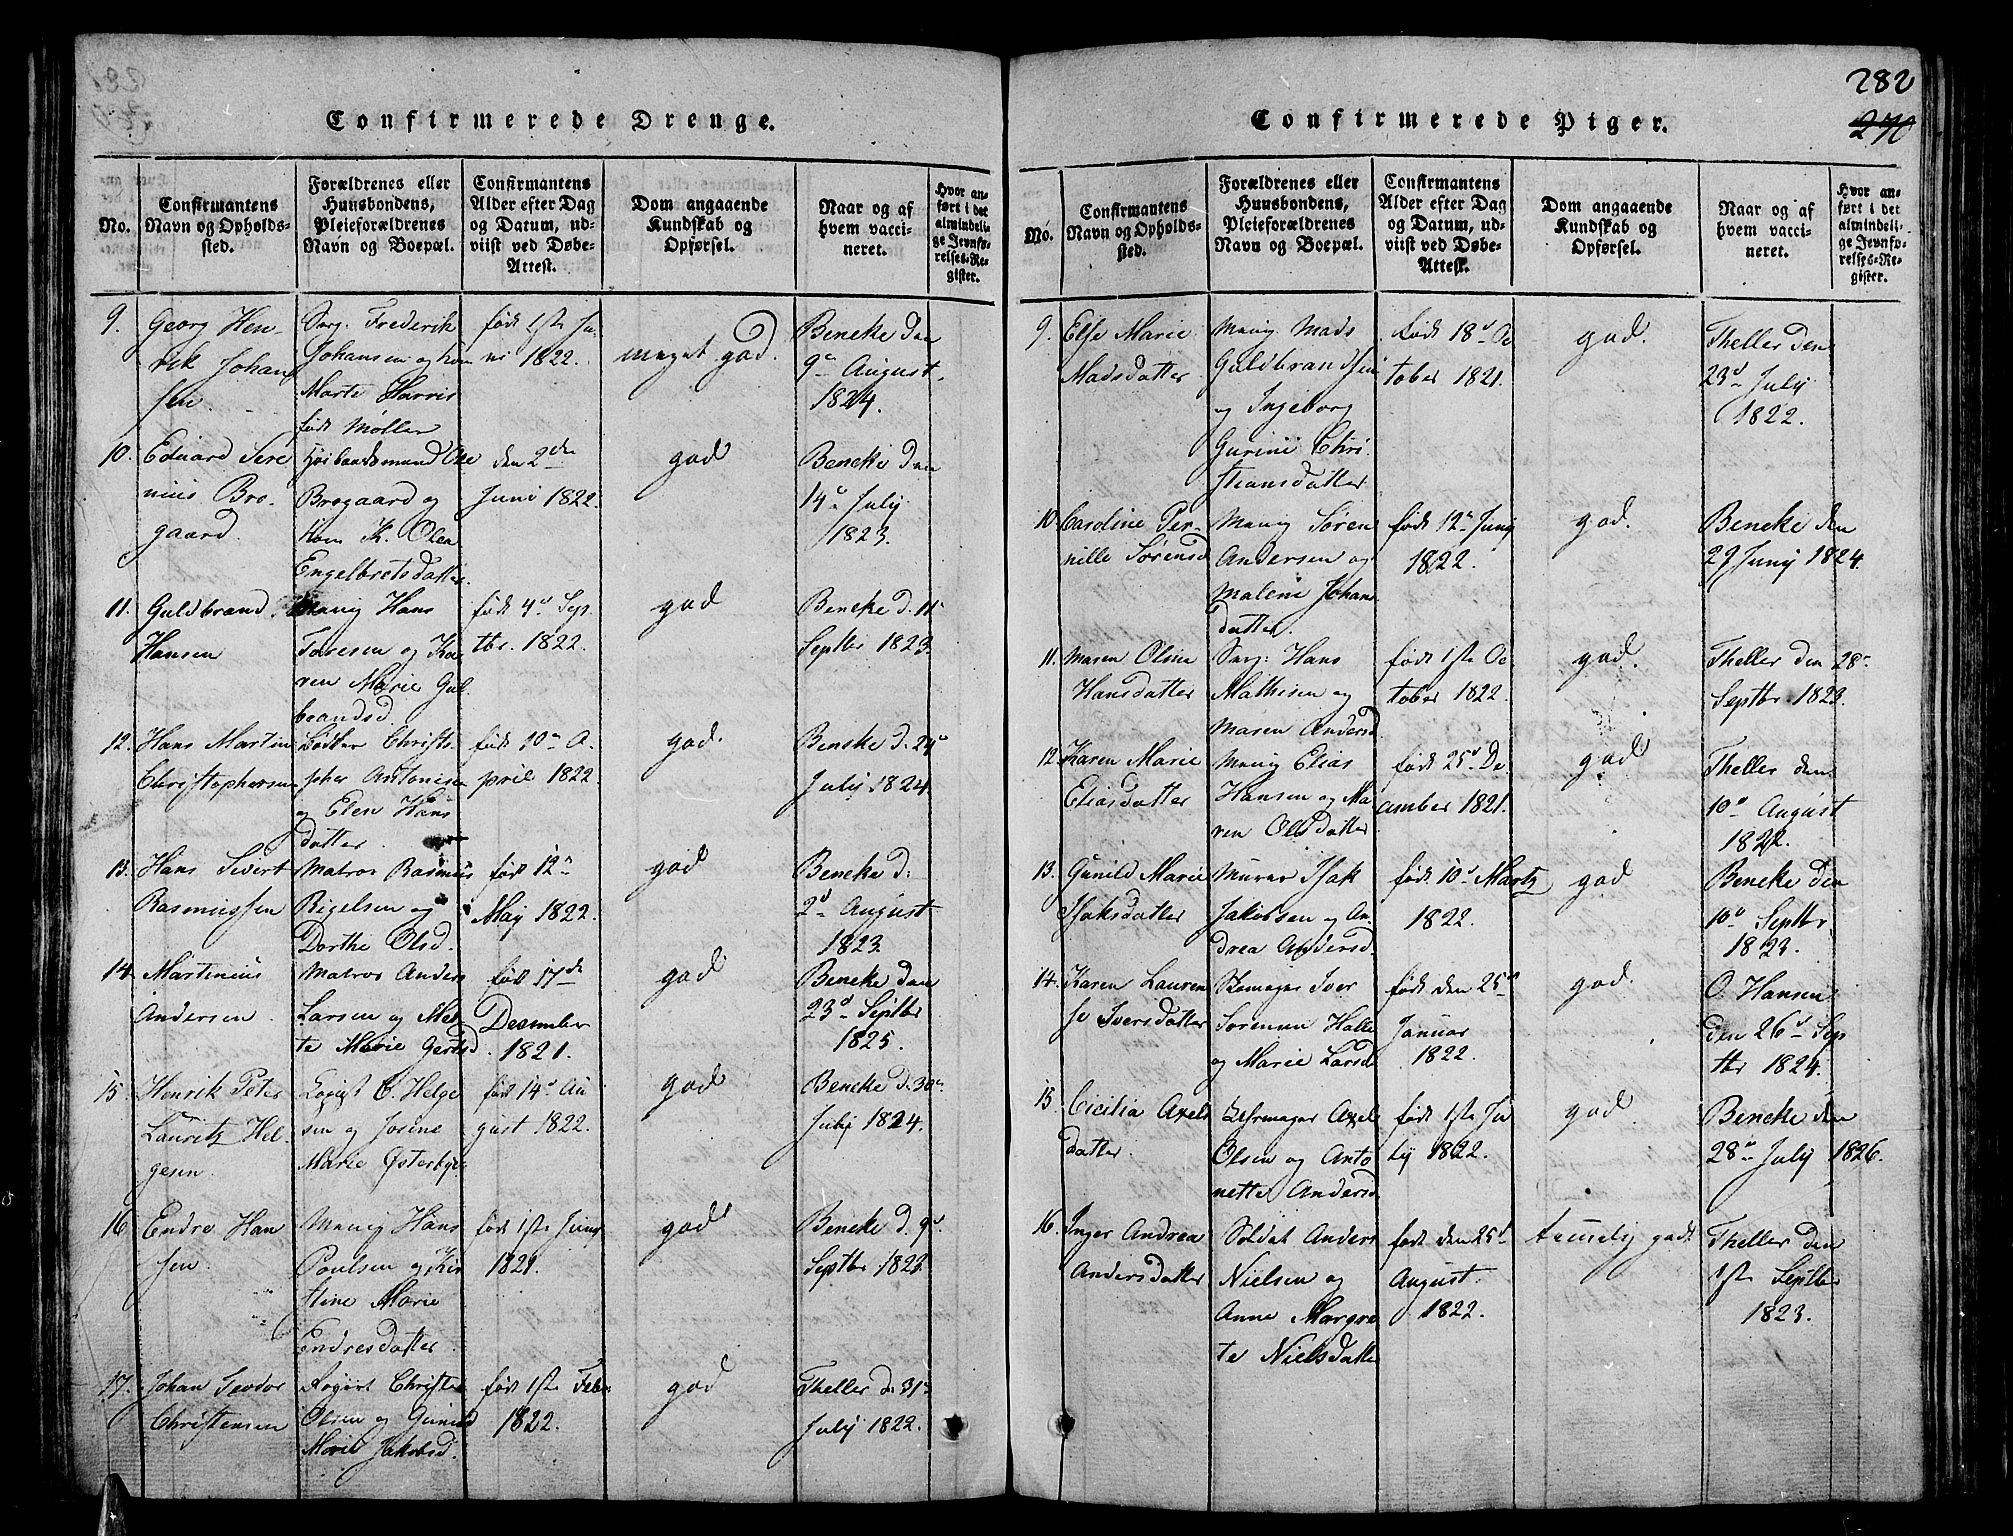 282
270
Confirmerede Drenge.
No.
Confirmantens
Navn og Opholds-
sted.
Forældrenes eller
Huusbondens,
Pleieforældrenes
Navn og Boepæl.
Confirmantens
Alder efter Dag
og Datum, ud-
viist ved Døbe-
Attest.
Dom angaaende
Kundskab og
Opførsel.
Naar og af
hvem vacci-
neret.
Hvor an-
ført i det
almindeli-
ge Jevnfø-
relses-Re-
gister.
9.
Georg Hen-
rik Johan
sen.
Frederik
Johansen og
Marte
født Møller
født 1ste Ju-
ni 1822.
meget god.
Beneke den
9de August
1824.
10.
Eduard Sere
nius Bro-
gaard.
Brogaard og
Kone K. Olea
Engelbretsdatter
den 2den
Juni 1822.
god
Beneke den
14de July
1823.
11.
Guldbrand
Hansen
Hans
Taresen og Ka-
ren Marie Gul
brandsd.
født 4de Sep
tbr. 1822.
god
Beneke d. 11te
Septbr 1823.
12.
Hans Martin
Christophersen
Bødker Christo-
pher Antonisen
og Elen Hans
datter.
født 10de A-
pril 1822.
god.
Beneke d. 24de
July 1824.
13.
Hans Sivert
Rasmussen
Matros Rasmus
Rigelsen og
Dorthe Olsd.
født 12te
May 1822.
god
Beneke d.
2de August
1823.
14.
Martinius
Andersen
Matros Anders
Larsen og Met
te Marie Gertsd.
født 17de
December
1821.
god
Beneke den
23de Septbr
1825.
15.
Henrik Peter
Lauritz Hel-
gesen.
C. Helge
sen og Josine
Marie Østerbye
født 14de Au
gust 1822.
god
Beneke d. 30te
July 1824.
16
Endre Han
sen.
Hans
Poulsen og Kir
stine Marie
Endresdatter.
født 1ste Juny
1821.
god
Beneke d. 9de
Septbr 1822.
17.
Johan Teodor
Christensen
Christen
Olsen og Gunild
Marie Jakobsd.
født 1ste Febr.
1822.
god
Theller d. 31te
July 1822.
Confirmerede Piger.
No.
Confirmantens
Navn og Opholds-
sted.
Forældrenes eller
Huusbondens,
Pleieforældrenes
Navn og Boepæl.
Confirmantens
Alder efter Dag
og Datum, ud-
viist ved Døbe-
Attest.
Dom angaaende
Kundskab og
Opførsel.
Naar og af
hvem vacci-
neret.
Hvor an-
ført i det
almindeli-
ge Jevnfø-
relses-Re-
gister.
9.
Else Marie
Madsdatter
Mads
Guldbrandsen
og Ingeborg
Gurine Chri-
stiansdatter
Født 18de Oc
tober 1821.
god.
Theller den
23de July
1822.
10.
Caroline Per-
nille Sørensd.
Søren
Andersen og
Malene Johans
datter.
født 12te Juny
1822.
god.
Beneke den
29 Juny 1824.
11.
Maren Oline
Hansdatter
Hans
Mathisen og
Maren Andersd.
født 1ste Oc
tober 1822.
god.
Theller den 28de
Septbr 1823.
12.
Karen Marie
Eliasdatter
Elias
Hansen og Ma
ren Olsdatter
født 25de De
cember 1821.
god
Theller den
10de August
1822.
13.
Gunild Marie
Isaksdatter
Murer Isak
Jakobsen og An-
drea Andersd.
født 10de Martz
1822.
god
Beneke den
10de Septbr
1823.
14.
Karen Lauren
se Iversdatter
Skomager Iver
Sørensen Halle
og Marie Larsd.
født den 25de
Januar
1822.
god.
O. Hansen
den 26de Sep
tbr 1824.
15.
Cicilia Axels
datter.
Axel
Olsen og Anto
nette Andersd.
født 1ste Ju
ly 1822.
god.
Beneke den
28de July 1826.
16.
Inger Andrea
Andersdatter
Soldat Anders
Nielsen og
Anne Margre
te Nielsdatter
født den 25de
August
1822.
temmelig godt
Theller den
1ste Septbr
1823.